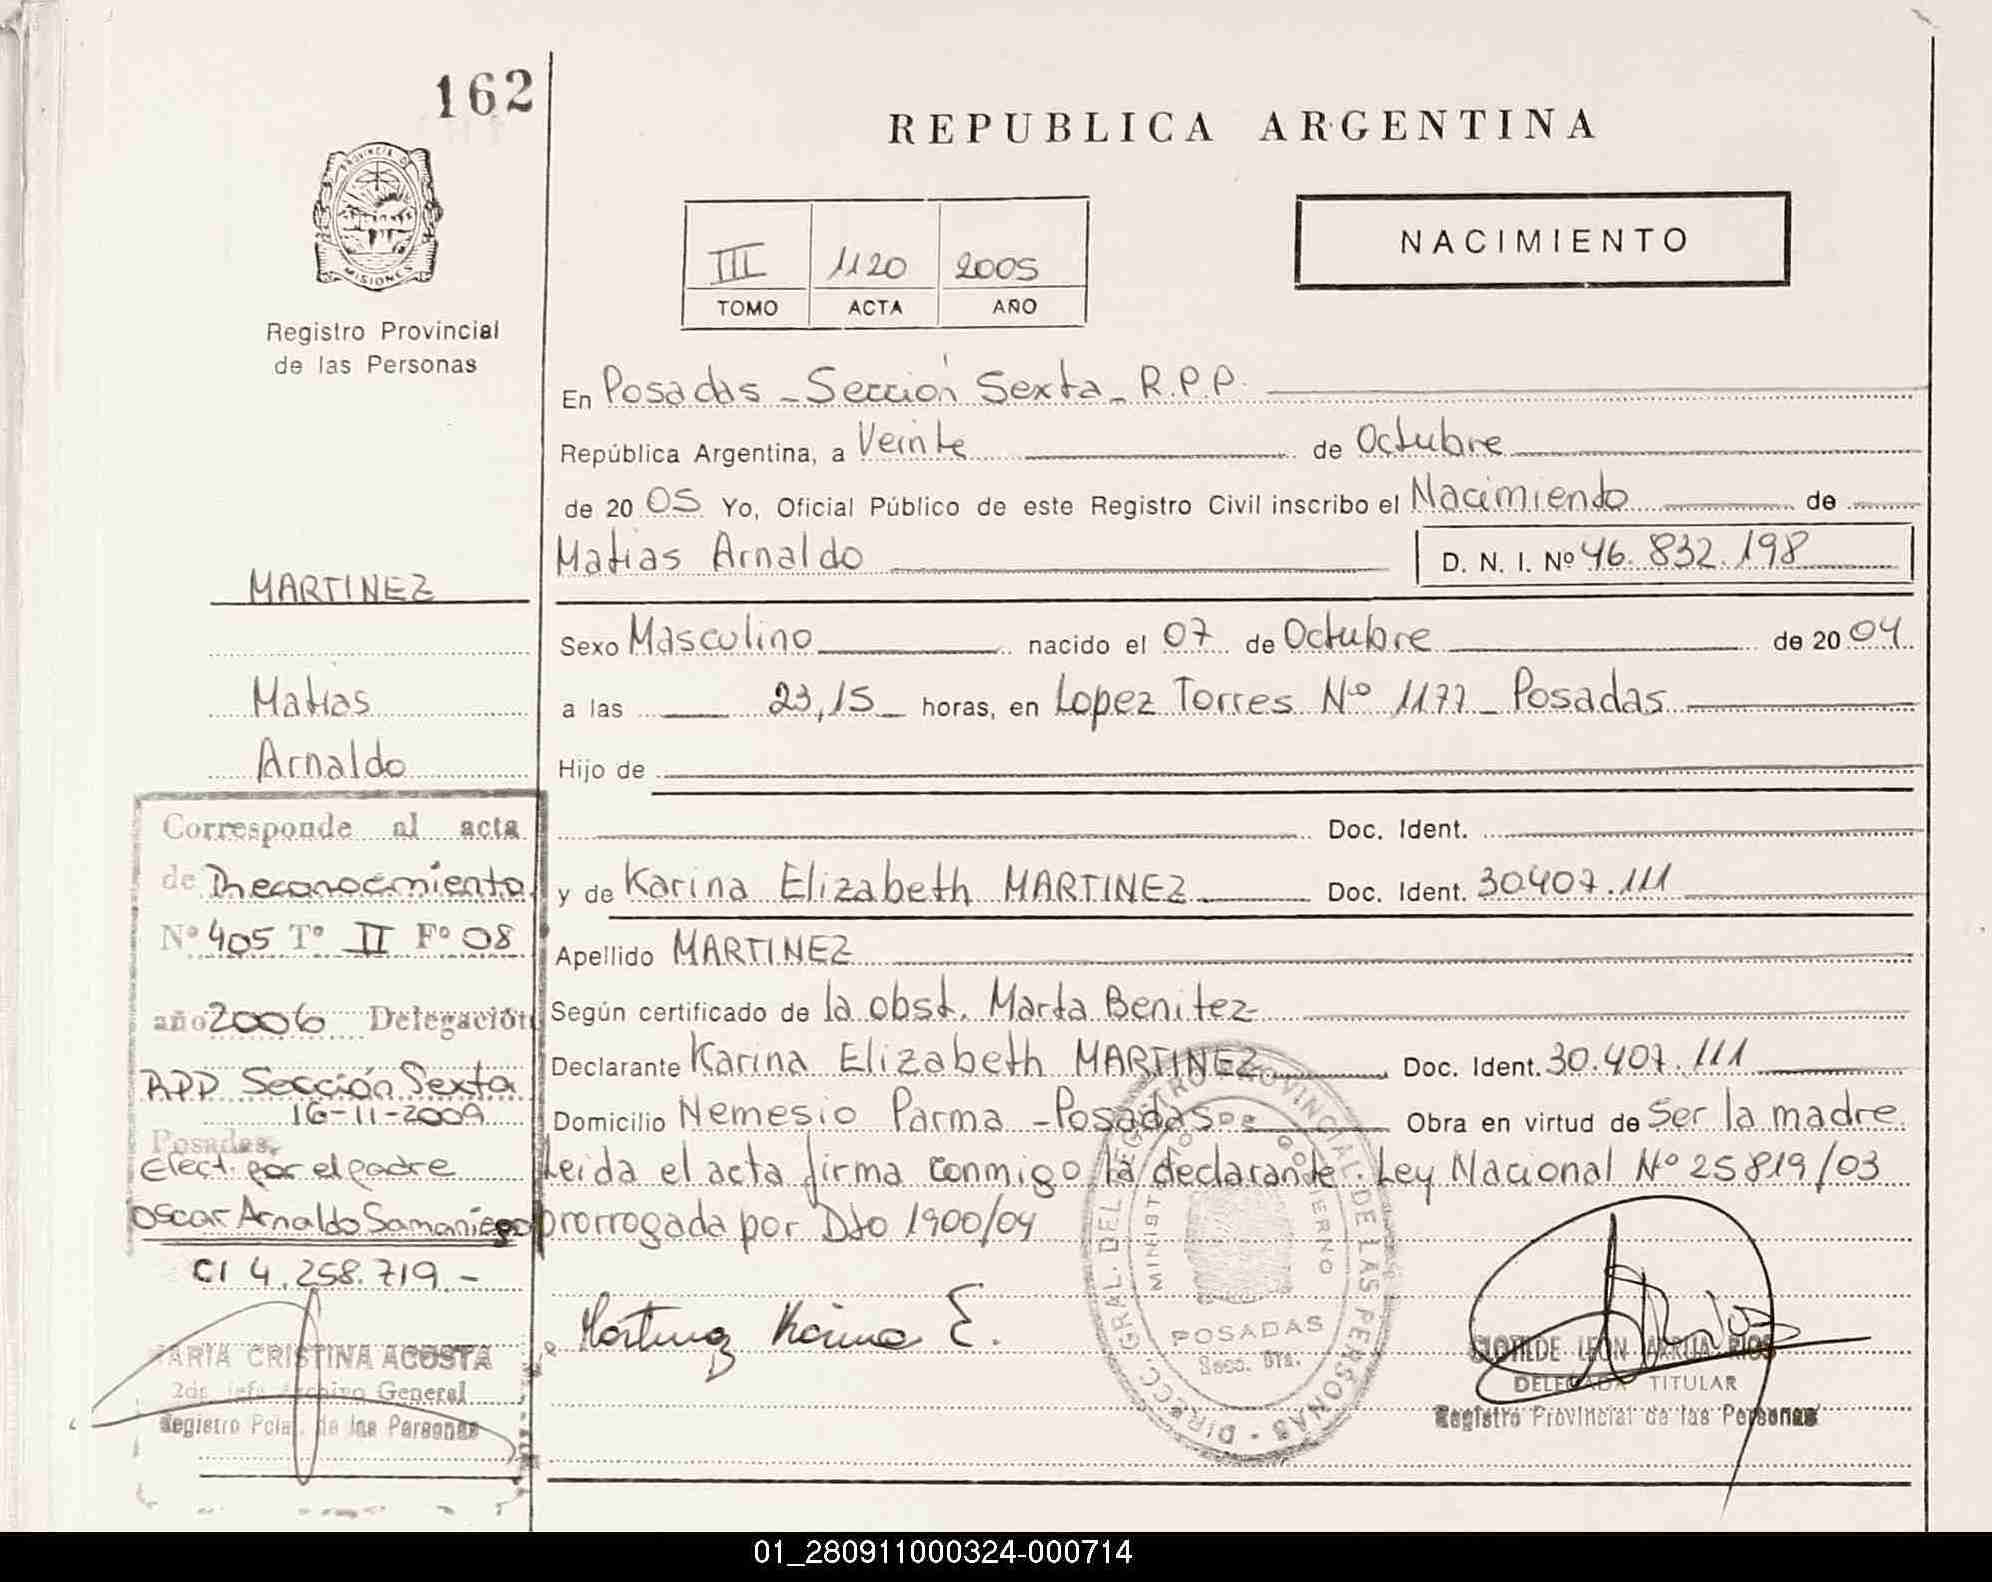 162
PROVINCIA DE
MISIONES
Registro Provincial
de las Personas
MARTINEZ
Matias
Arnaldo
Corresponde al acta
de Reconocimiento
Nº 405 Tº II Fº 08
año 2006 Delegación
RPP Sección Sexta
16-11-2009
Posadas,
elect. por el padre
Oscar Arnaldo Samaniego
CI 4.258.719.-
MARIA CRISTINA ACOSTA
2da. Jefa Archivo General
Registro Pcial. de las Personas
REPUBLICA ARGENTINA
III 1120 2005
TOMO ACTA AÑO
NACIMIENTO
En Posadas - Sección Sexta - R.P.P.
República Argentina, a Veinte de Octubre
de 20 05 Yo, Oficial Público de este Registro Civil inscribo el Nacimiento de
Matias Arnaldo D. N. I. Nº 46.832.198
Sexo Masculino nacido el 07 de Octubre de 20 04
a las 23,15 horas, en Lopez Torres Nº 1177 - Posadas
Hijo de
Doc. Ident.
y de Karina Elizabeth MARTINEZ Doc. Ident. 30.407.111
Apellido MARTINEZ
Según certificado de la obst. Marta Benitez
Declarante Karina Elizabeth MARTINEZ Doc. Ident. 30.407.111
Domicilio Nemesio Parma - Posadas Obra en virtud de Ser la madre
Leida el acta firma conmigo la declarante. Ley Nacional Nº 25819/03
prorrogada por Dto 1900/04
Martinez Karina E.
DIRECC. GRAL. DEL REGISTRO PROVINCIAL DE LAS PERSONAS
MINISTERIO DE GOBIERNO
POSADAS
Secc. 6ta.
CLOTILDE LEON ARRUA RIOS
DELEGADA TITULAR
Registro Provincial de las Personas
01_280911000324-000714